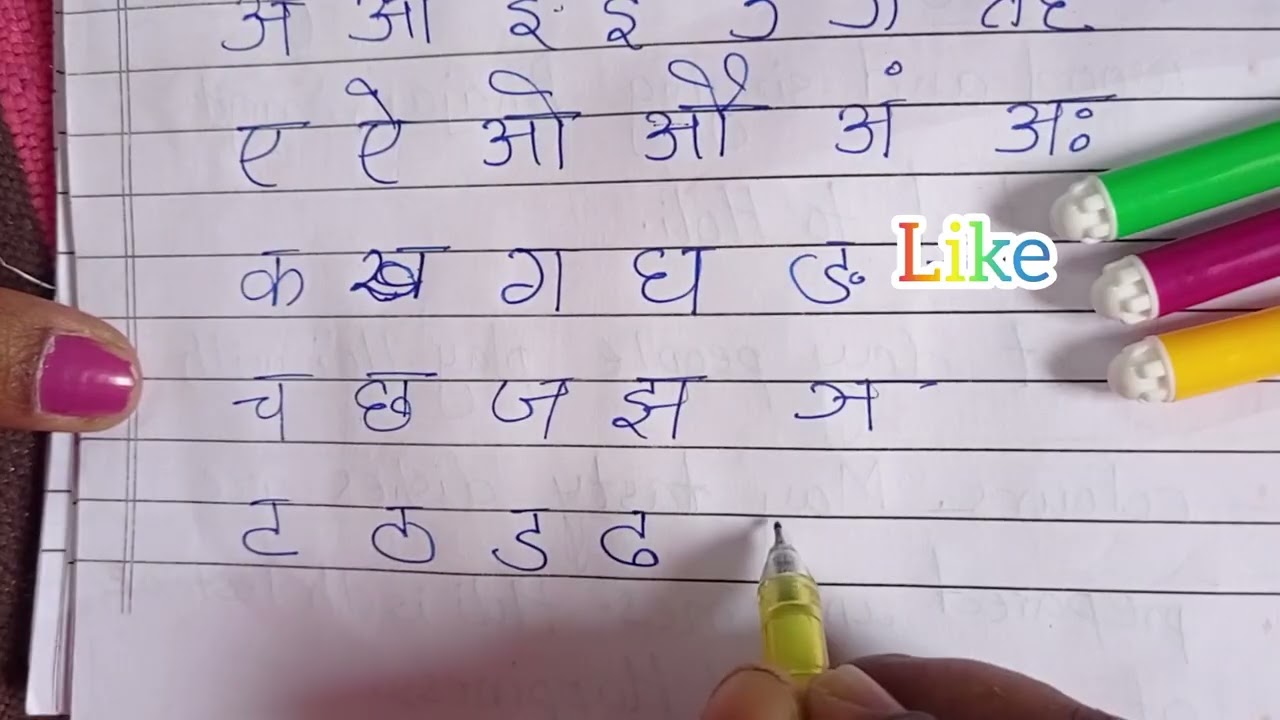 अ आ इ ई उ ऊ ऋ
ए ऐ ओ औ अं अः
क ख ग घ ङ Like
च छ ज झ ञ
ट ठ ड ढ